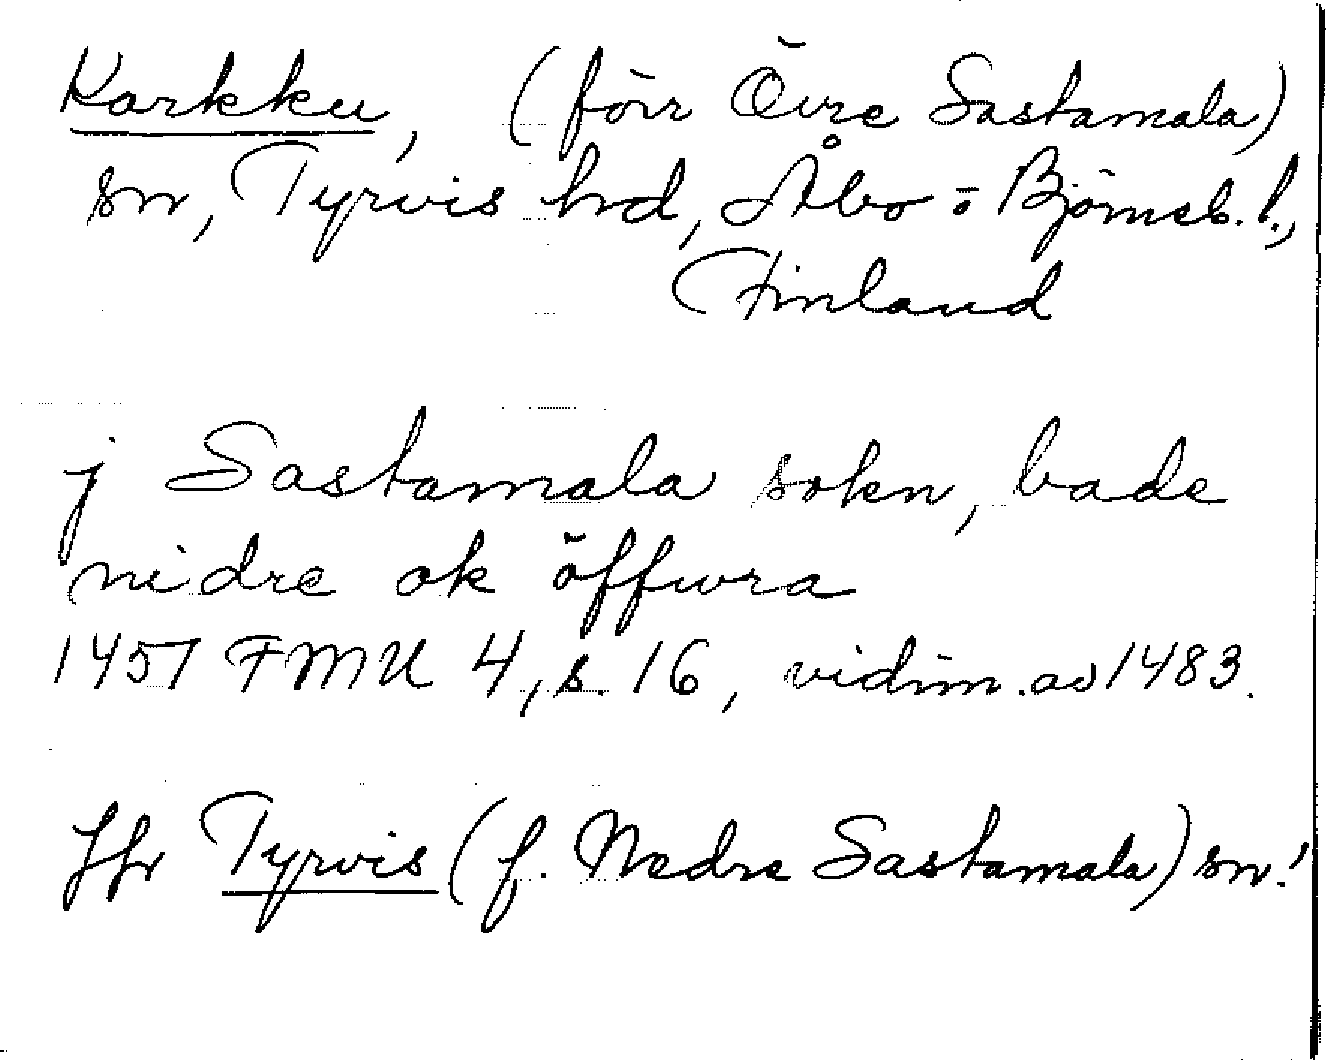 Karkku, (förr Övre Sastamala)
sn, Tyrvis hrd, Åbo o Björneb. l.,
Finland
j Sastamala sokn, bade
nidre ok öffwra
1457 FMU 4, s. 16, vidim. av 1483.
Jfr Tyrvis (f. Nedre Sastamala) sn!